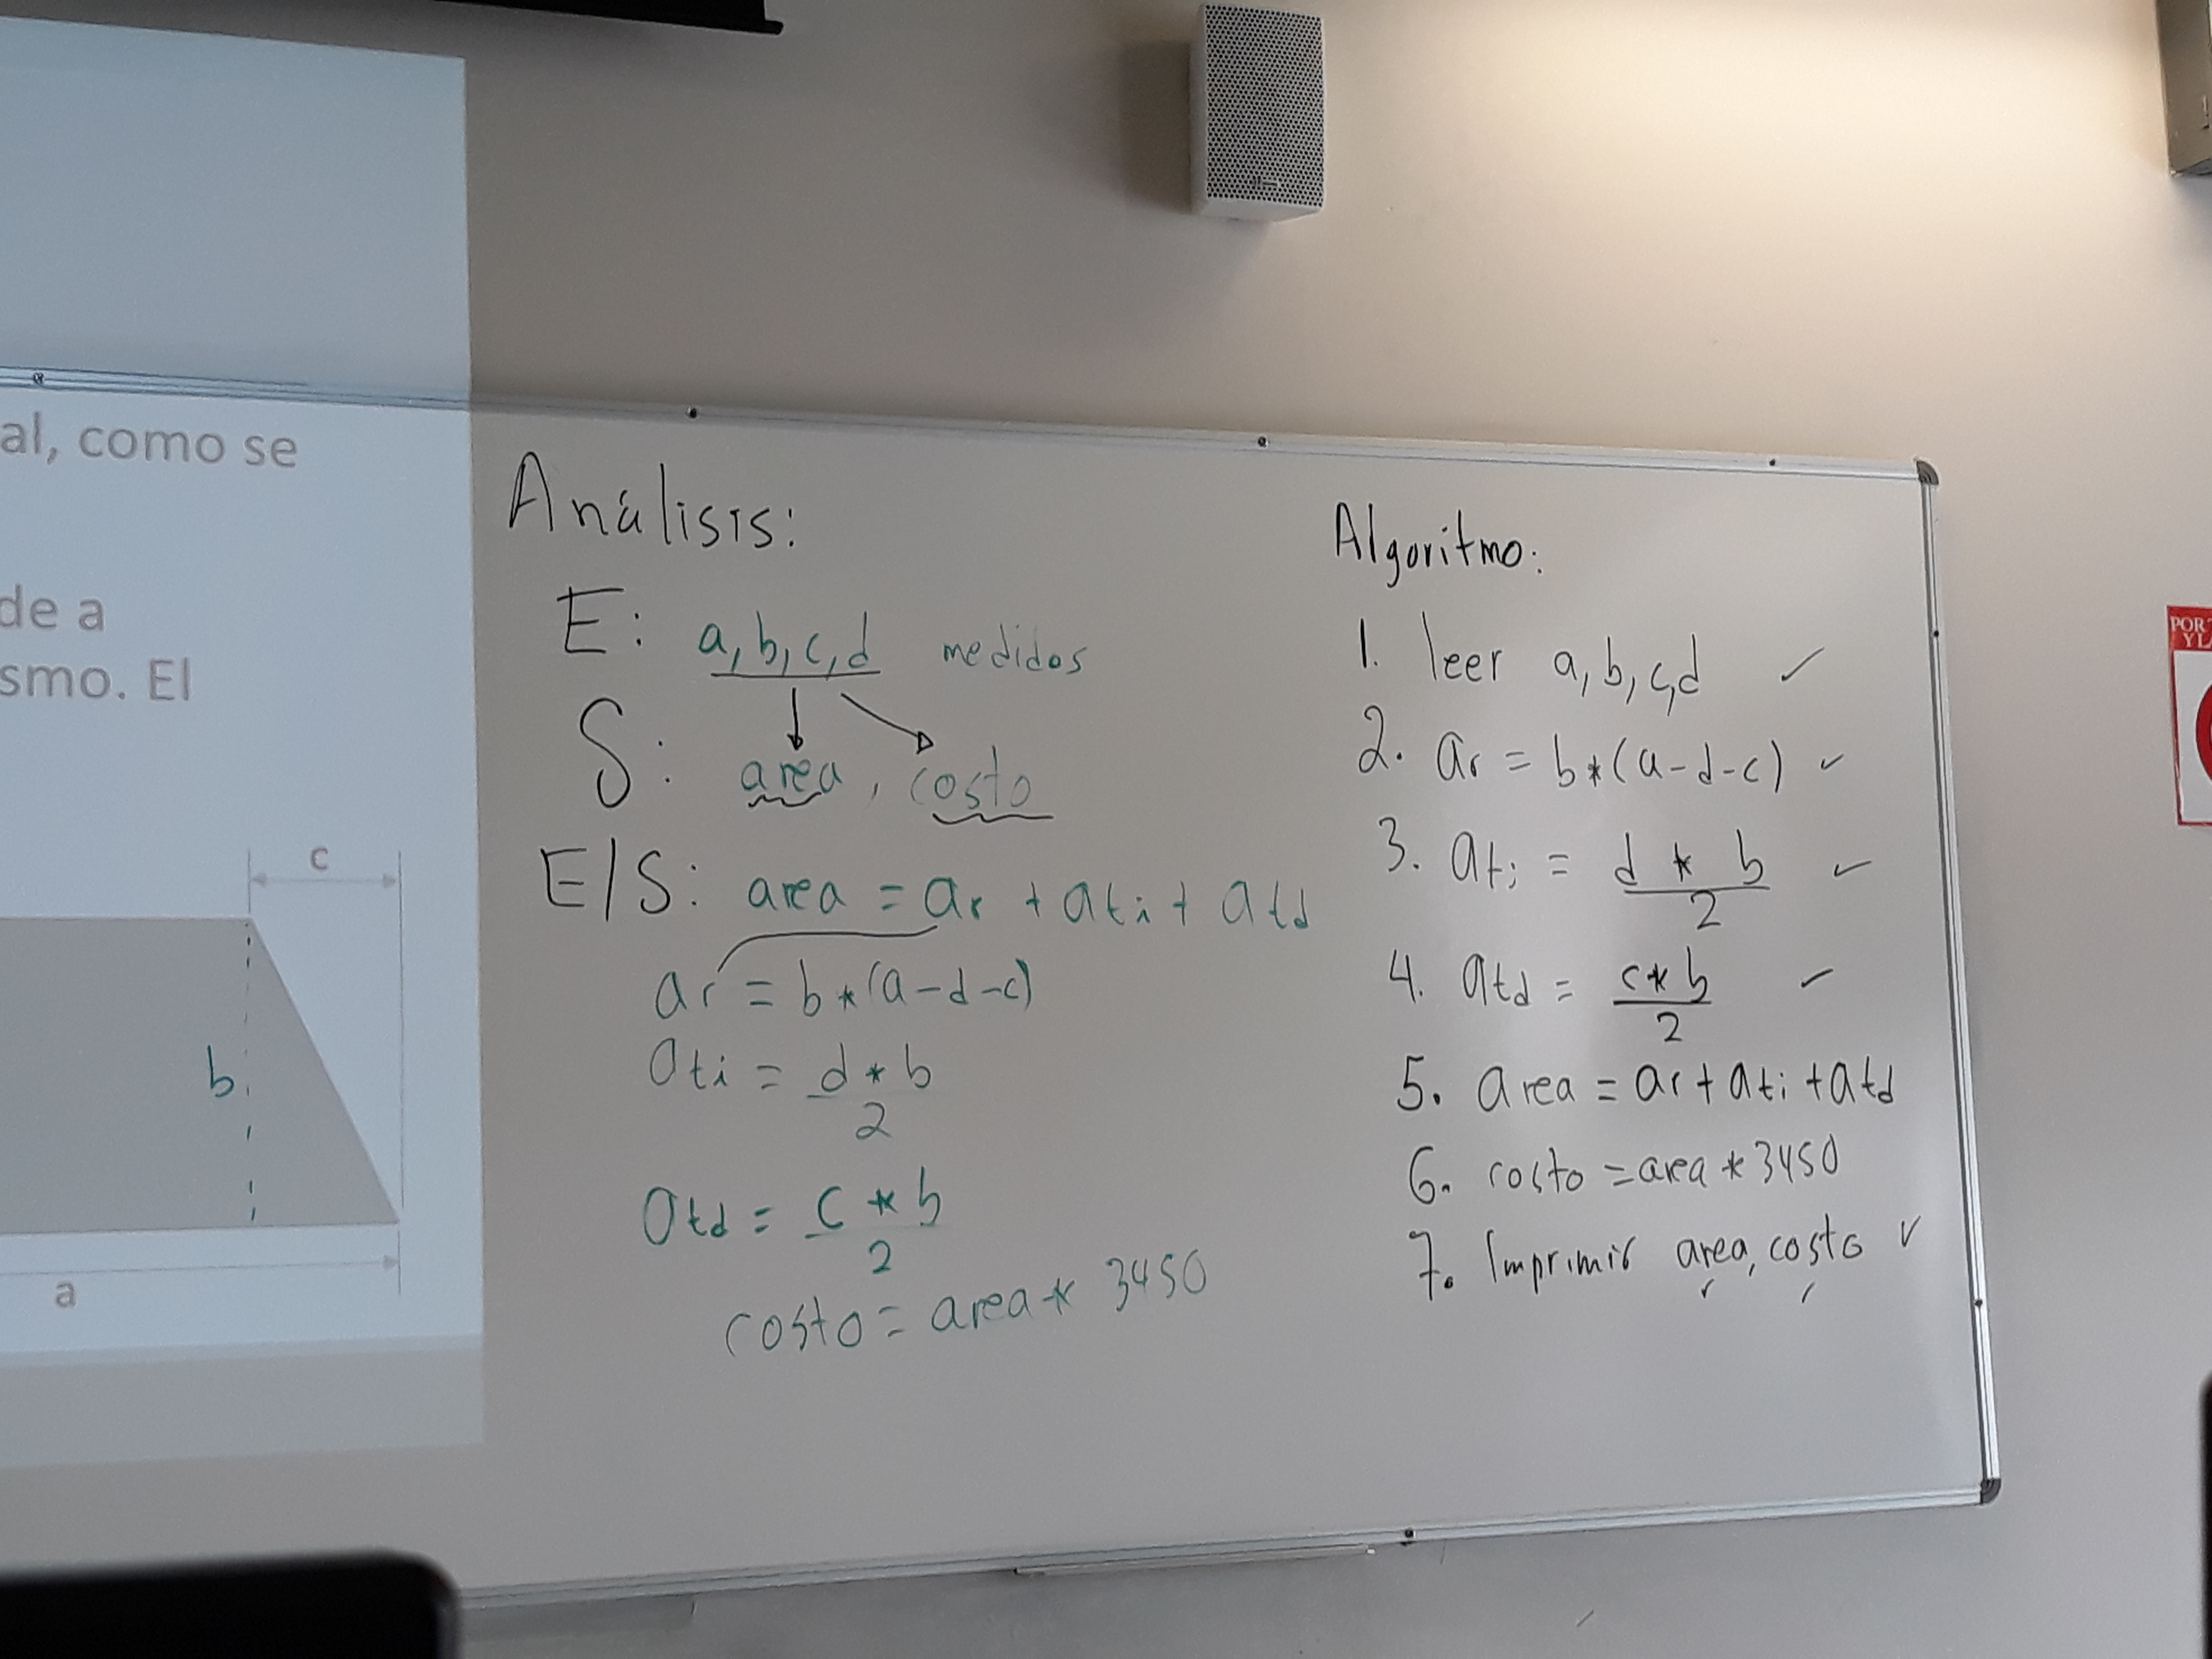 al, como se
de a
smo. El
c
b
a
Análisis:
E: a, b, c, d medidos
S: area, costo
E/S: area = ar + ati + atd
ar = b*(a-d-c)
ati = d * b
2
atd = c * b
2
costo = area * 3450
Algoritmo:
1. leer a, b, c, d ✓
2. ar = b*(a-d-c) ✓
3. ati = d * b ✓
2
4. atd = c*b ✓
2
5. area = ar + ati + atd
6. costo = area * 3450
7. Imprimir area, costo ✓
POR